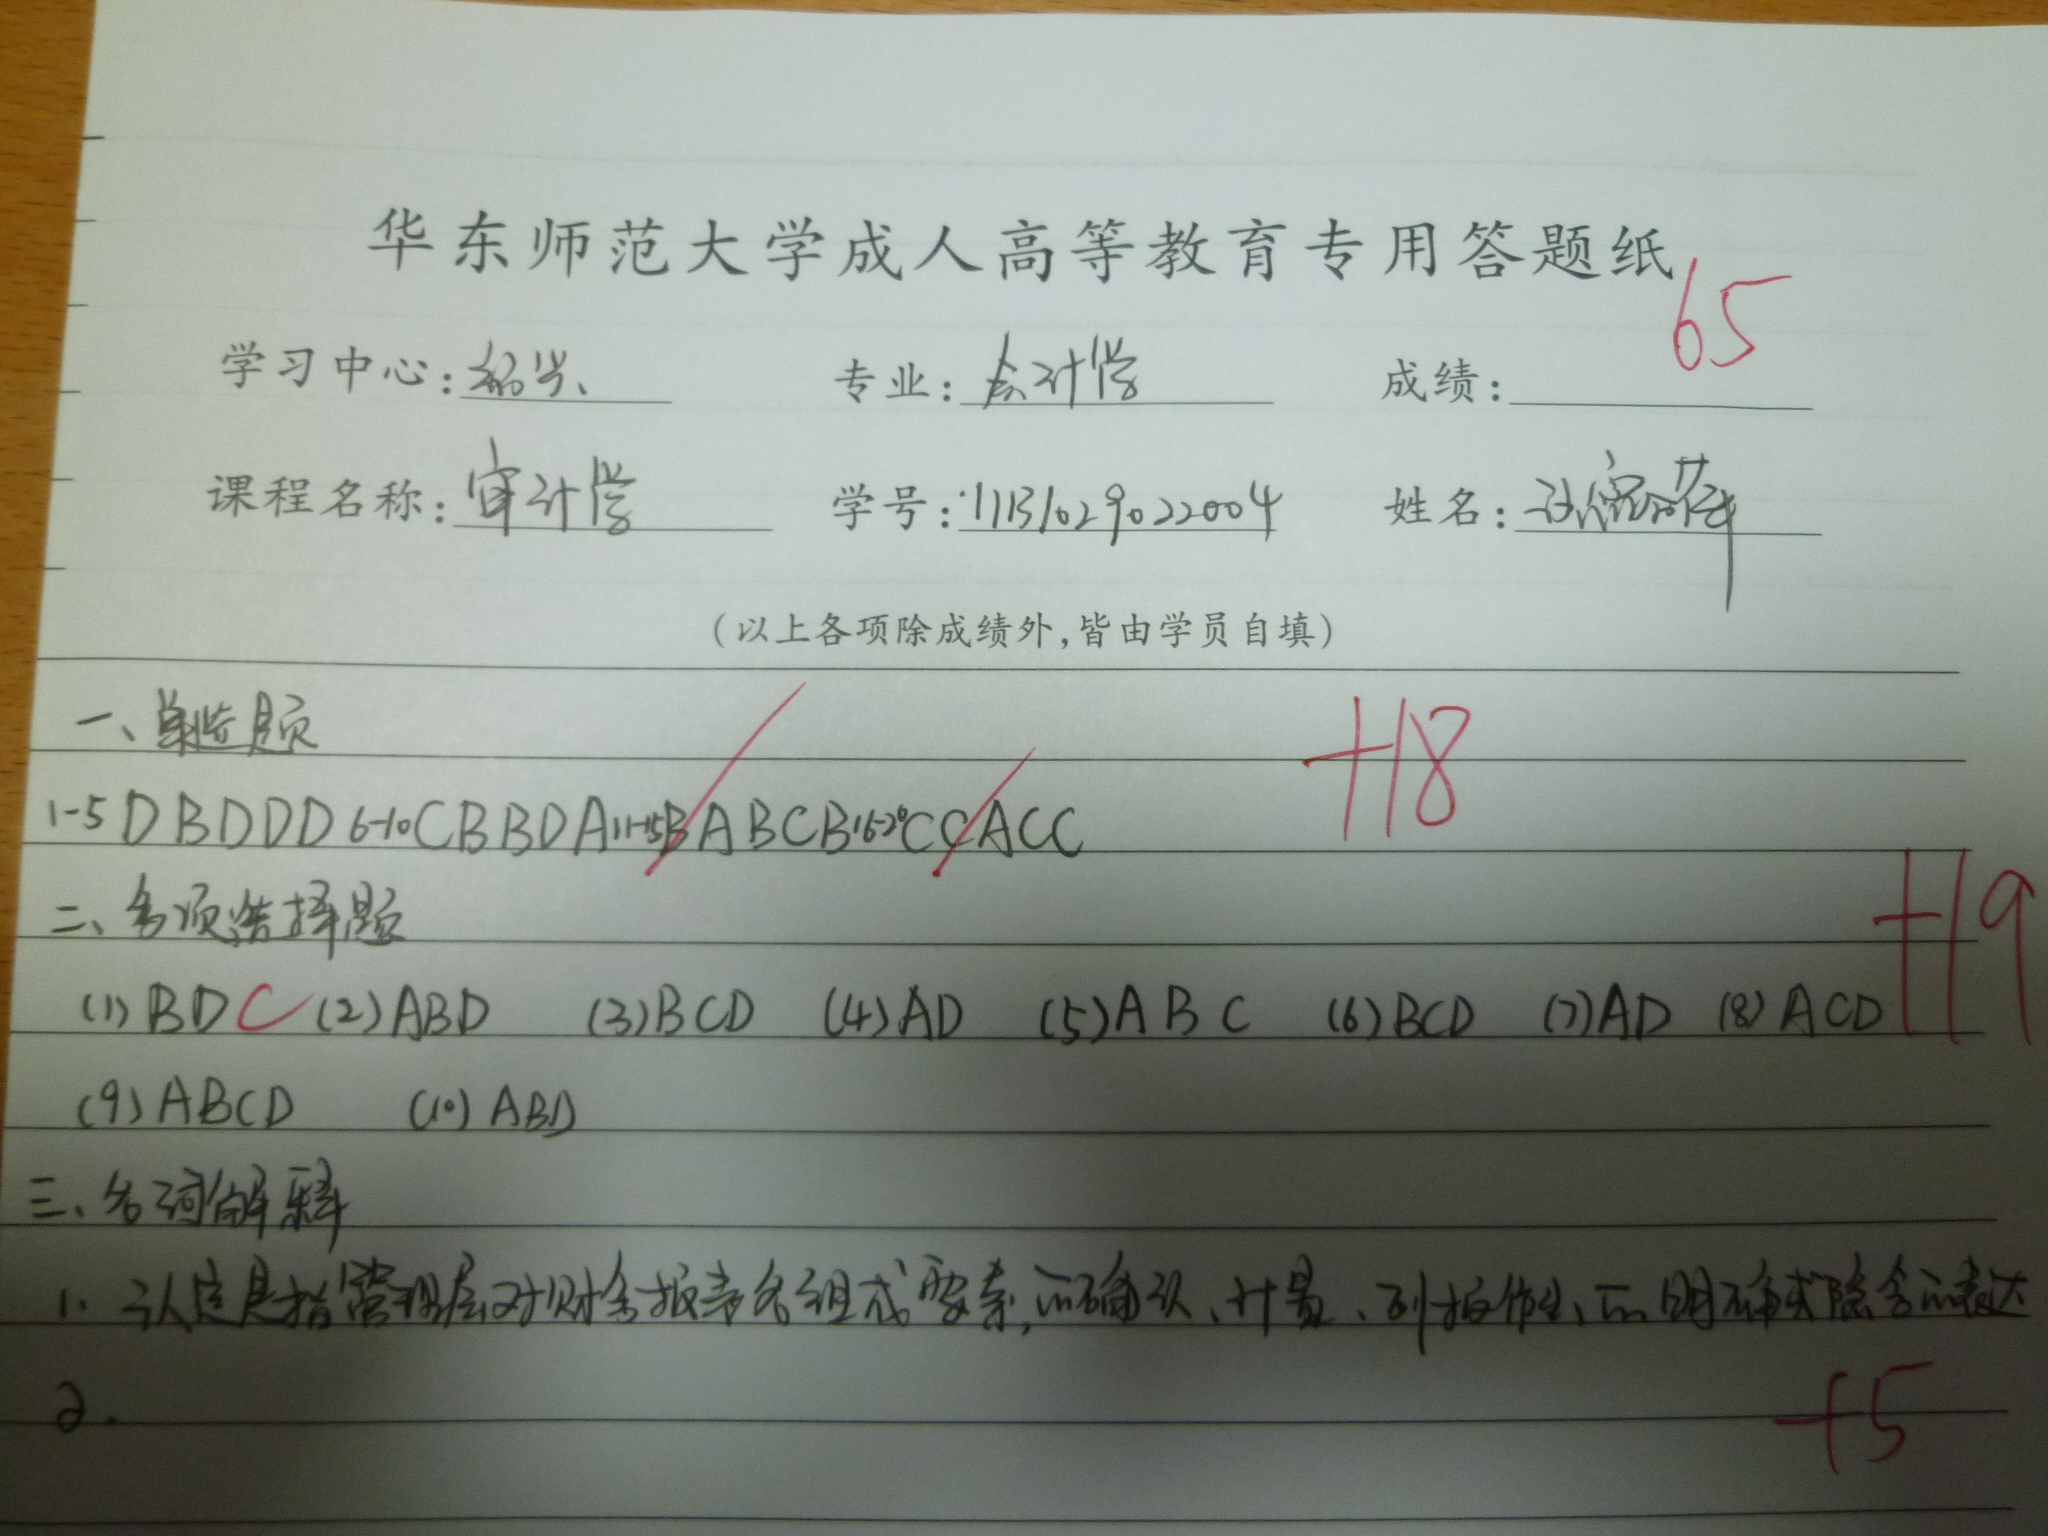 华东师范大学成人高等教育专用答题纸
65
学习中心:绍兴 专业:会计学 成绩:
课程名称:审计学 学号:11131029022004 姓名:
(以上各项除成绩外,皆由学员自填)
一、单选题 +18
1-5 DBDDD 6-10 CBBDA 11-15 BABCB 16-20 CCACC
二、多项选择题 +19
(1) BDC (2) ABD (3) BCD (4) AD (5) ABC (6) BCD (7) AD (8) ACD
(9) ABCD (10) ABD
三、名词解释
1. 认定是指管理层对财务报表各组成要素的确认、计量、列报作出的明确或隐含的表达
2. +5